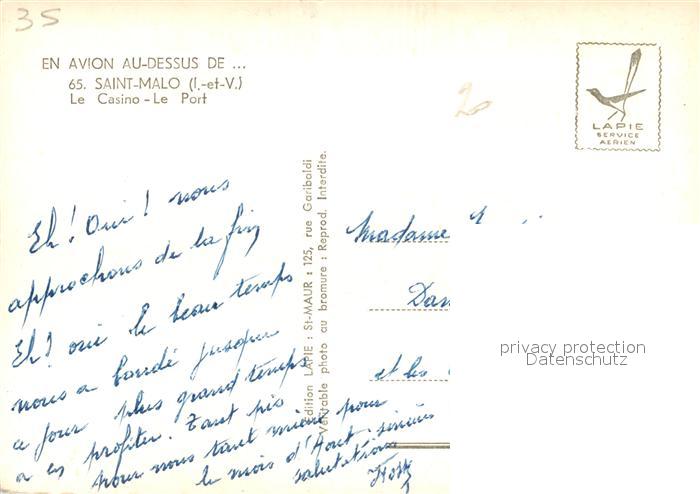 35
EN AVION AU-DESSUS DE ...
65. SAINT-MALO (I.-et-V.)
Le Casino - Le Port
20
LAPIE
SERVICE
AERIEN
Eh ! Oui ! nous
approchons de la fin
Eh ! oui le beau temps
nous a boudé jusqu'au
ce jour plus grand temps
a en profiter. Tant pis
pour nous tant mieux pour
le mois d'Aout. sincères
salutations
Édition LAPIE : St-MAUR : 125, rue Garibaldi
Véritable photo au bromure : Reprod. Interdite.
Madame
et les
privacy protection
Datenschutz